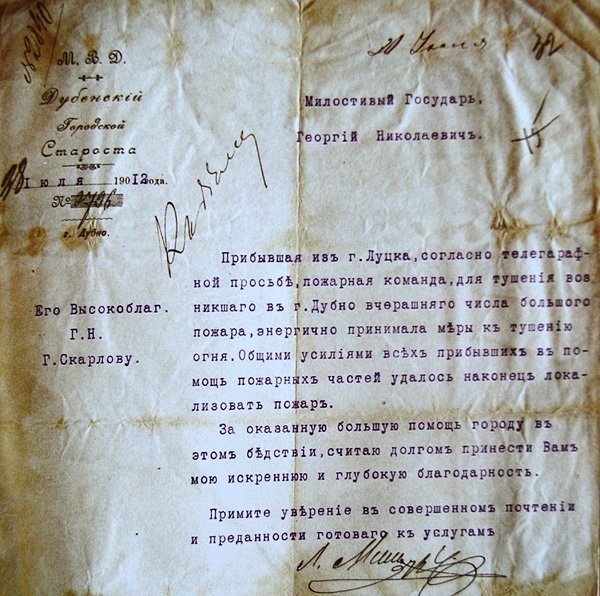 М. В. Д.
Дубенскій
Городской
Староста
28 Іюля 1912 года.
№
г. Дубно.
Милостивый Государь,
Георгій Николаевичъ.
Къ дѣлу
Его Высокоблаг.
Г.Н.
Г.Скарлову.
Прибывшая изъ г.Луцка,согласно телеграф-
ной просьбѣ,пожарная команда,для тушенія воз
никшаго въ г.Дубно вчерашняго числа большого
пожара,энергично принимала мѣры къ тушенію
огня.Общими усиліями всѣхъ прибывшихъ въ по-
мощь пожарныхъ частей удалось наконецъ лока-
лизовать пожаръ.
За оказанную большую помощь городу въ
этомъ бѣдствіи,считаю долгомъ принести Вамъ
мою искреннюю и глубокую благодарность.
Примите увѣреніе въ совершенномъ почтеніи
и преданности готоваго къ услугамъ